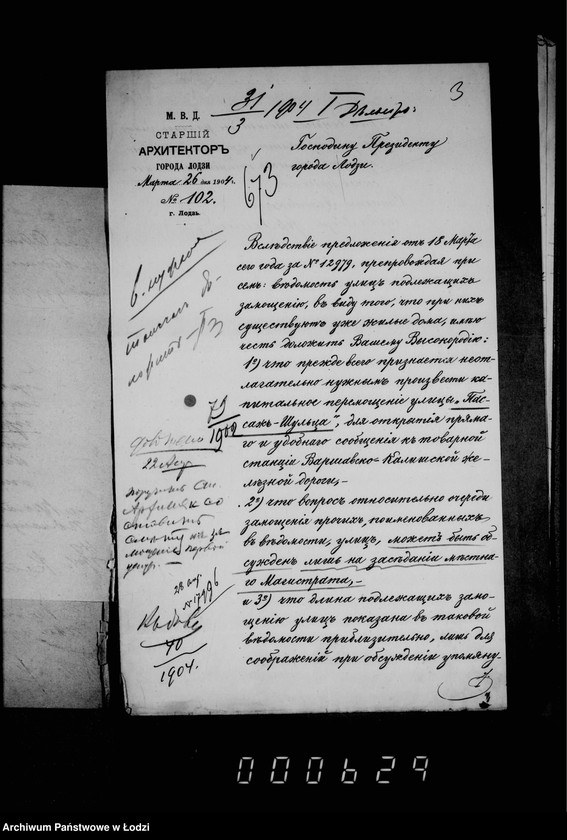 3
31/3 1904 I
М. В. Д.
СТАРШІЙ
АРХИТЕКТОРЪ
ГОРОДА ЛОДЗИ
Марта 26 дня 1904 г.
№ 102.
г. Лодзь.
673
Господину Президенту
города Лодзи.
Вслѣдствіе предложенія отъ 18 Марта
сего года за № 12979, препровождая при
семъ: вѣдомость улицъ подлежащихъ
замощенію, въ виду того, что при нихъ
существуютъ уже жилые дома, имѣю
честь доложить Вашему Высокородію:
1е) что прежде всего признается неот-
лагательно нужнымъ произвести ка-
питальное перемощеніе улицы „Пас-
сажъ-Шульца", для открытія прямо-
го и удобнаго сообщенія къ товарной
станціи Варшавско-Калишской же-
лѣзной дороги,-
2е) что вопросъ относительно очереди
замощенія прочихъ, поименованныхъ
въ вѣдомости, улицъ, можетъ быть об-
сужденъ лишь на засѣданіи мѣстна-
го Магистрата,-
и 3е) что длина подлежащихъ замо-
щенію улицъ показана въ таковой
вѣдомости приблизительно, лишь для
соображеній при обсужденіи упомяну-
79/1902
22 Апр
28 апр.
№ 17996
40
1904.
000629
Archiwum Państwowe w Łodzi